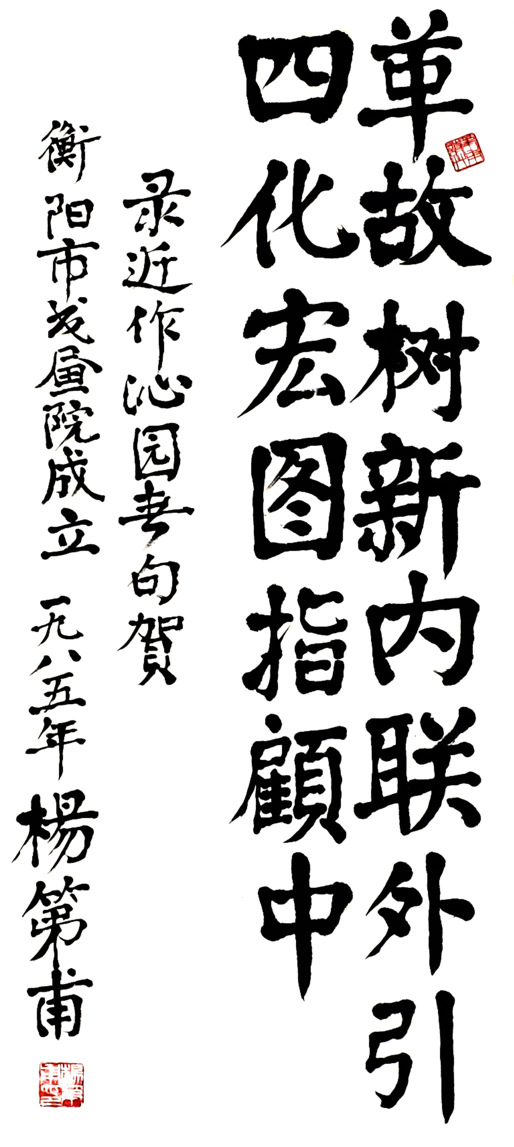 革故树新内联外引
四化宏图指顧中
录近作沁园春句賀
衡阳市书画院成立 一九八五年 楊第甫